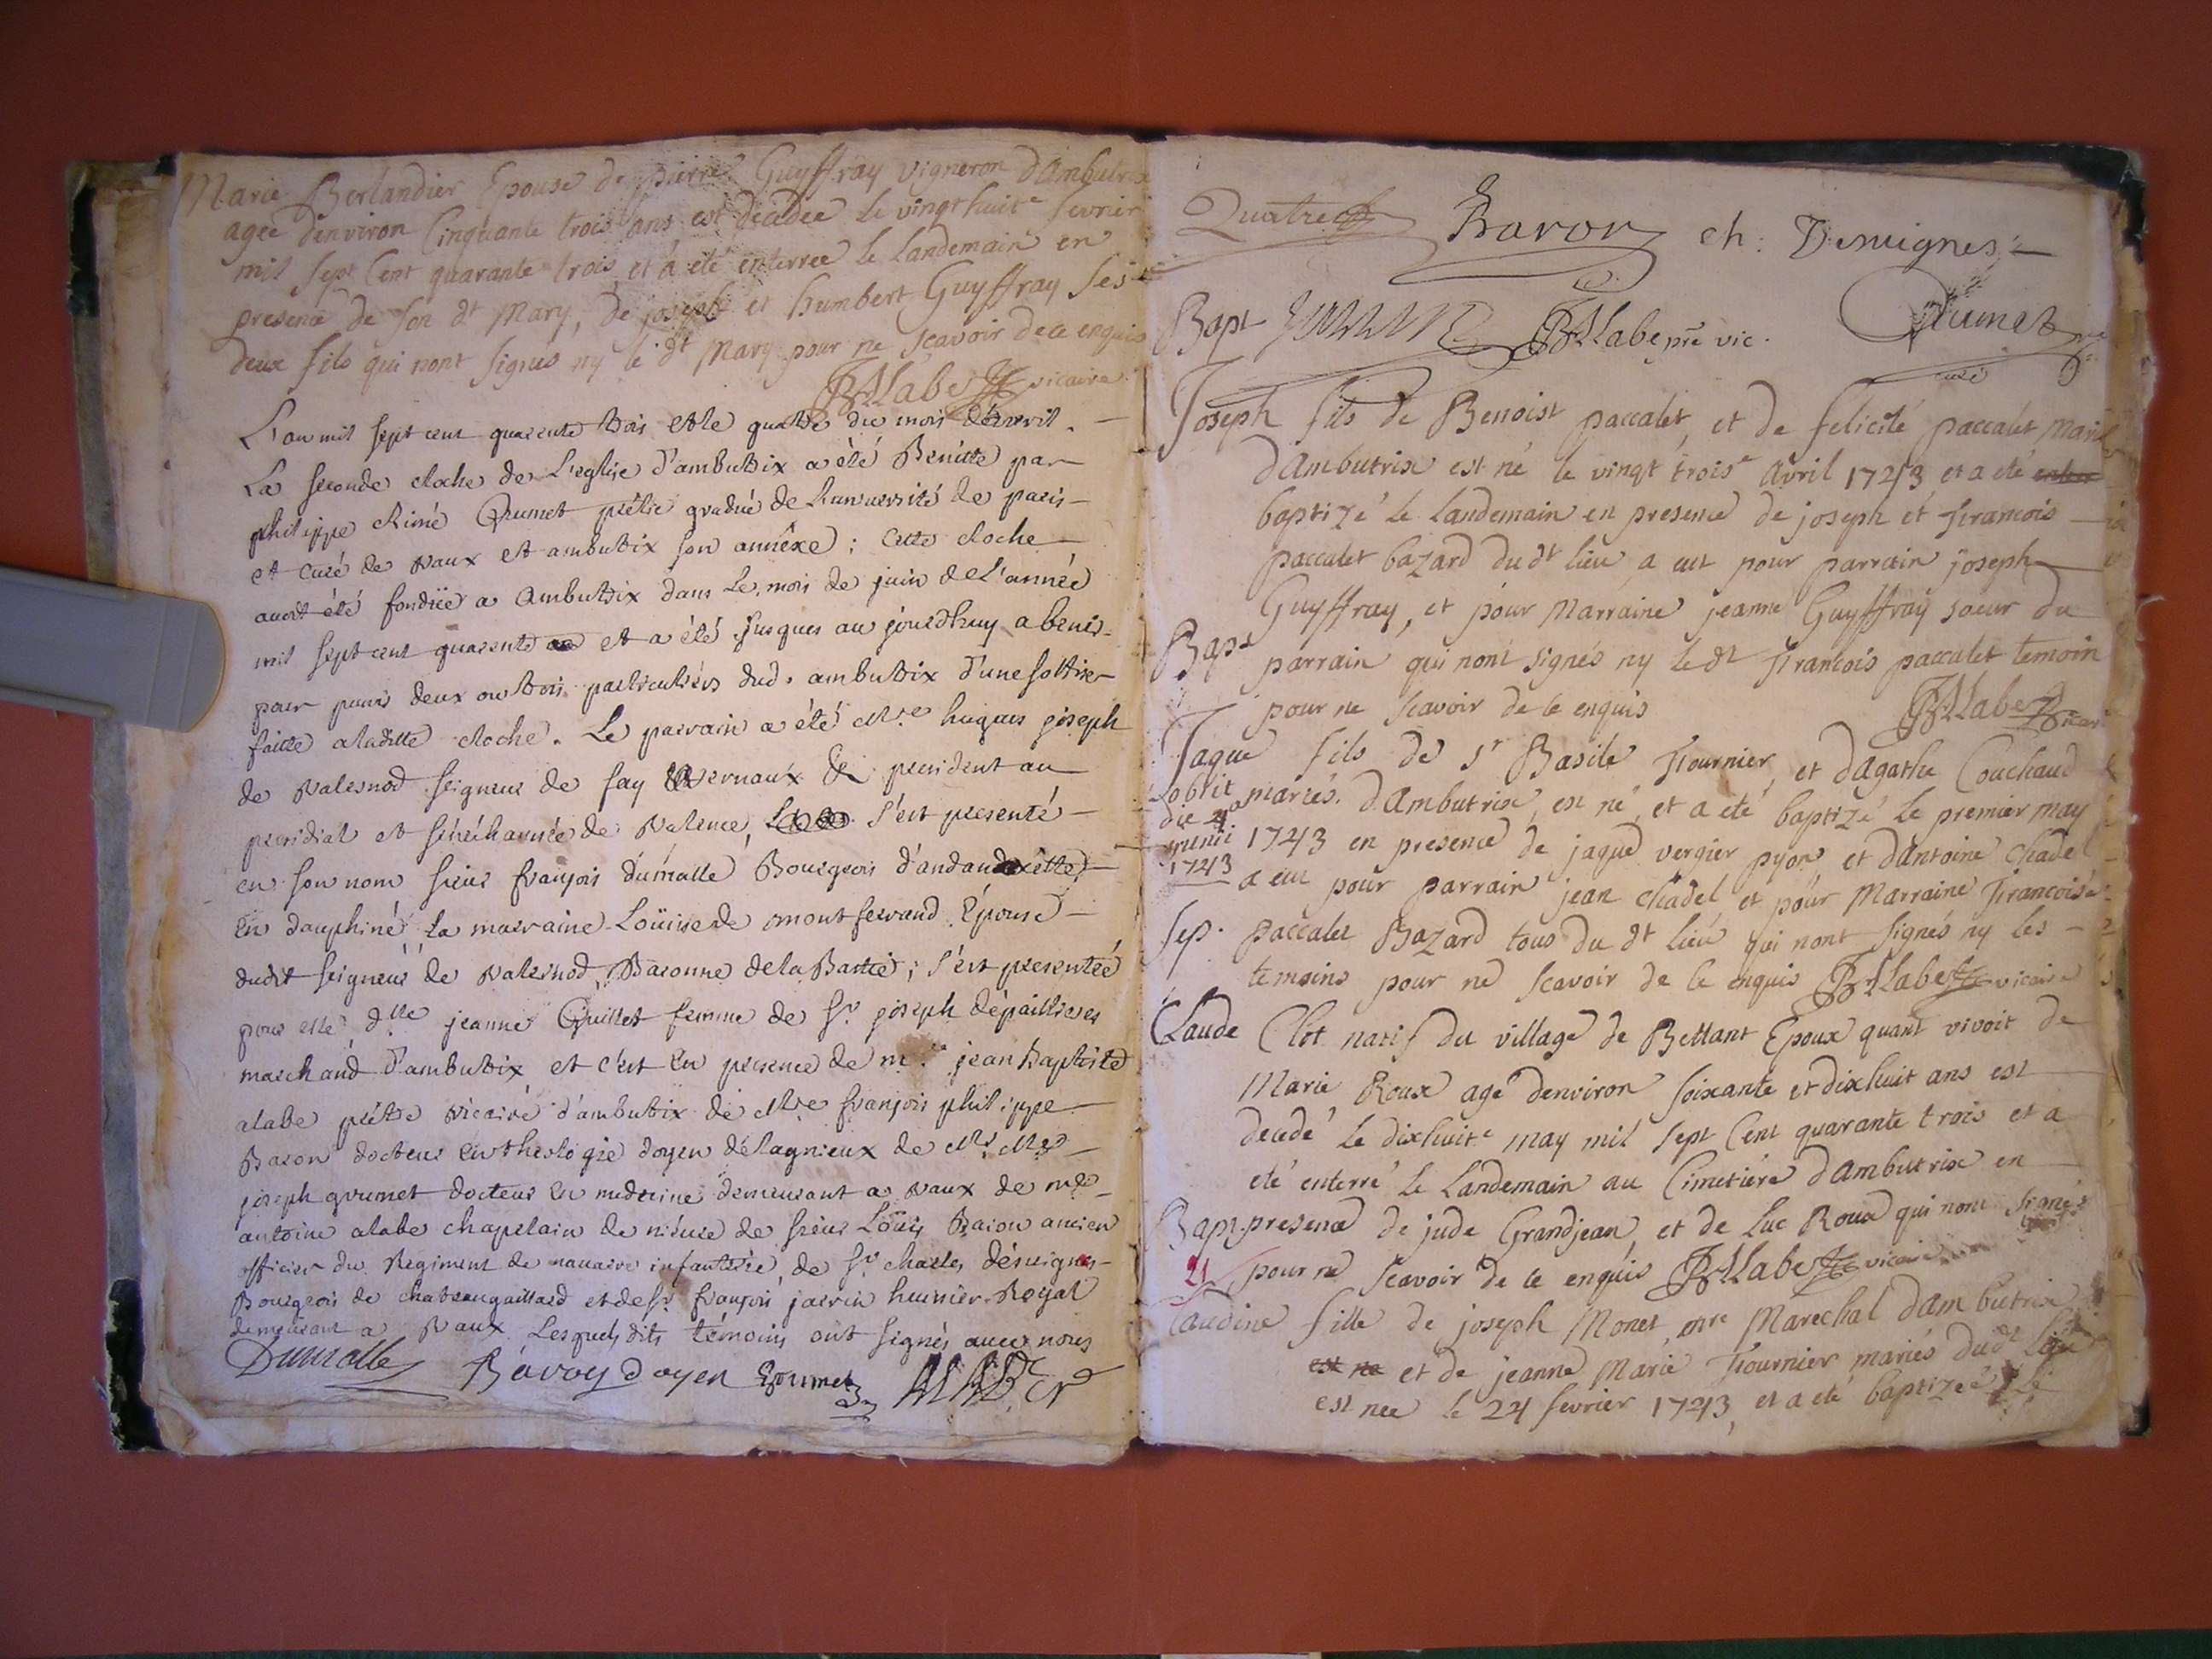 Marie Berlandier Epouse de pierre Guyffray vigneron dAmbutrix
agée denviron Cinquante trois ans est decedee le vingt huite fevrier
mil sept Cent quarante trois et a eté enterree le landemain en
presence de son dt Mary, de joseph et humbert Guyffray ses
deux fils qui nont signés ny le dt Mary pour ne scavoir de ce enquis
Alabe vicaire
L'an mil sept cent quarente trois et le quatre du mois d'avril. —
La seconde cloche de L'eglise d'ambutrix a été Benitte par
philippe Grumet prêtre gradué de L'université de paris —
et curé de vaux et ambutrix son annexe ; cette cloche —
avoit été fondüe a ambutrix dans Le mois de juin de L'année
mil sept cent quarente et a été jusques au jourdhuy a benir
par deux ou trois particuliers dud. ambutrix d'une
faitte a laditte cloche. Le parrain a été Mre hugues joseph
de valernod seigneur de fay & president au
presidial et sénéchaussée de valence, s'est presenté —
en son nom sieur françois dumalle Bourgeois
En dauphiné, la marraine Loüise de montferrand Epouse —
dudit seigneur de valernod, Baronne de la Bastie ; s'est presentée
pour elle dlle jeanne Quillet femme de sr joseph
marchand d'ambutrix et c'est En presence de mre jean Baptiste
alabe prêtre vicaire d'ambutrix de Mre françois philippe —
Baron docteur En theologie doyen de Lagnieux de
joseph grumet docteur En medecine demeurant a vaux de mre
antoine alabe chapelain de sieur Loüis Baron ancien
officier du Regiment de navarre infanterie, de sr charles desvignes —
Bourgeois de chateaugaillard et de sr françois janin huissier Royal
demeurant a vaux Lesquels dits témoins ont signés avec nous
Dumalle Bavoz doyen Grumet
Baron ch: Desvignes —
Bapt Alabe pre vic. Grumet
curé
Joseph fils de Benoist paccalet, et de felicité paccalet Mariés
dAmbutrix est né le vingt troise Avril 1743 et a eté
baptizé le landemain en presence de joseph et francois —
paccalet bazard du dt lieu a eut pour parrain joseph —
Guyffray, et pour Marraine jeanne Guyffray soeur du
Bapt
parrain qui nont signés ny le dt francois paccalet temoin
pour ne scavoir de ce enquis Alabe vicaire
Jaque fils de sr Basile fournier, et dAgathe Couchaud
mariés dAmbutrix, est né, et a eté baptizé le premier may
obiit
die
junii
1743
1743 en presence de jaque vergier pyon et dAntoine Chadel
a eut pour parrain jean chadel et pour Marraine francoise
Sep. paccalet Bazard tous du dt lieu qui nont signés ny les —
temoins pour ne scavoir de ce enquis Alabe vicaire
Claude Clot natif du village de Bettant Epoux quant vivoit de
Marie Roux agé denviron soixante et dixhuit ans est
decedé le dixhuite may mil sept Cent quarante trois et a
eté enterré le landemain au Cimetiére dAmbutrix en
Bapt. presence de jude Grandjean, et de luc Roux qui nont signés
21 pour ne scavoir de ce enquis Alabe vicaire
Claudine fille de joseph Monet, Marechal dAmbutrix
est né et de jeanne Marie fournier mariés dudt lieu
est née le 24 fevrier 1743, et a eté baptizeé le